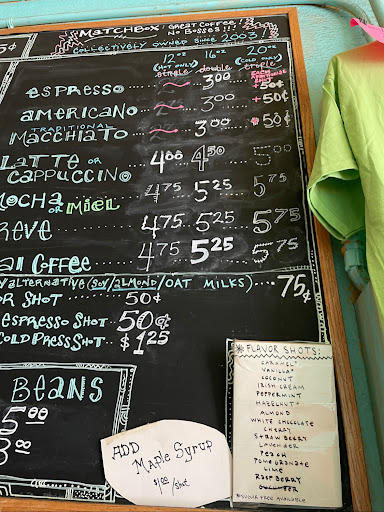 MATCHBOX: GREAT COFFEE!
NO BOSSES!!!
COLLECTIVELY OWNED SINCE 2003!
5¢
12oz 16oz 20oz
(HOT ONLY) (COLD ONLY)
single double triple
ESPRESSO ~ 3.00 +50¢
AMERICANO ~ 3.00 +50¢
TRADITIONAL
MACCHIATO ~ 3.00 50¢
LATTE OR
CAPPUCCINO 4.00 4.50 5.00
MOCHA
OR MIEL 4.75 5.25 5.75
REVE 4.75 5.25 5.75
COFFEE 4.75 5.25 5.75
ALTERNATIVE (SOY/ALMOND/OAT MILKS)....75¢
OR SHOT...... 50¢
ESPRESSO SHOT.. 50¢
COLD PRESS SHOT.. $1.25
BEANS
5.00
3.00
ADD
MAPLE SYRUP
$1.00/shot
FLAVOR SHOTS:
CARAMEL*
VANILLA*
COCONUT
IRISH CREAM
PEPPERMINT
HAZELNUT*
ALMOND
WHITE CHOCOLATE
CHERRY
STRAWBERRY
LAVENDER
PEACH
POMEGRANATE
LIME
RASPBERRY
*SUGAR FREE AVAILABLE